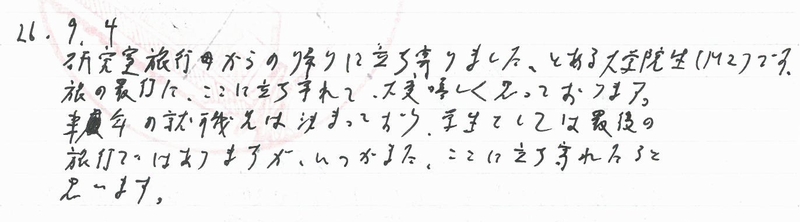 26. 9. 4
研究室旅行からの帰りに立ち寄りました、とある大学院生(M2)です。
旅の最後に、ここに立ち寄れて、大変嬉しく思っております。
来年の就職先は決まっており、学生としては最後の
旅行ではありますが、いつかまた、ここに立ち寄れたらと
思います。